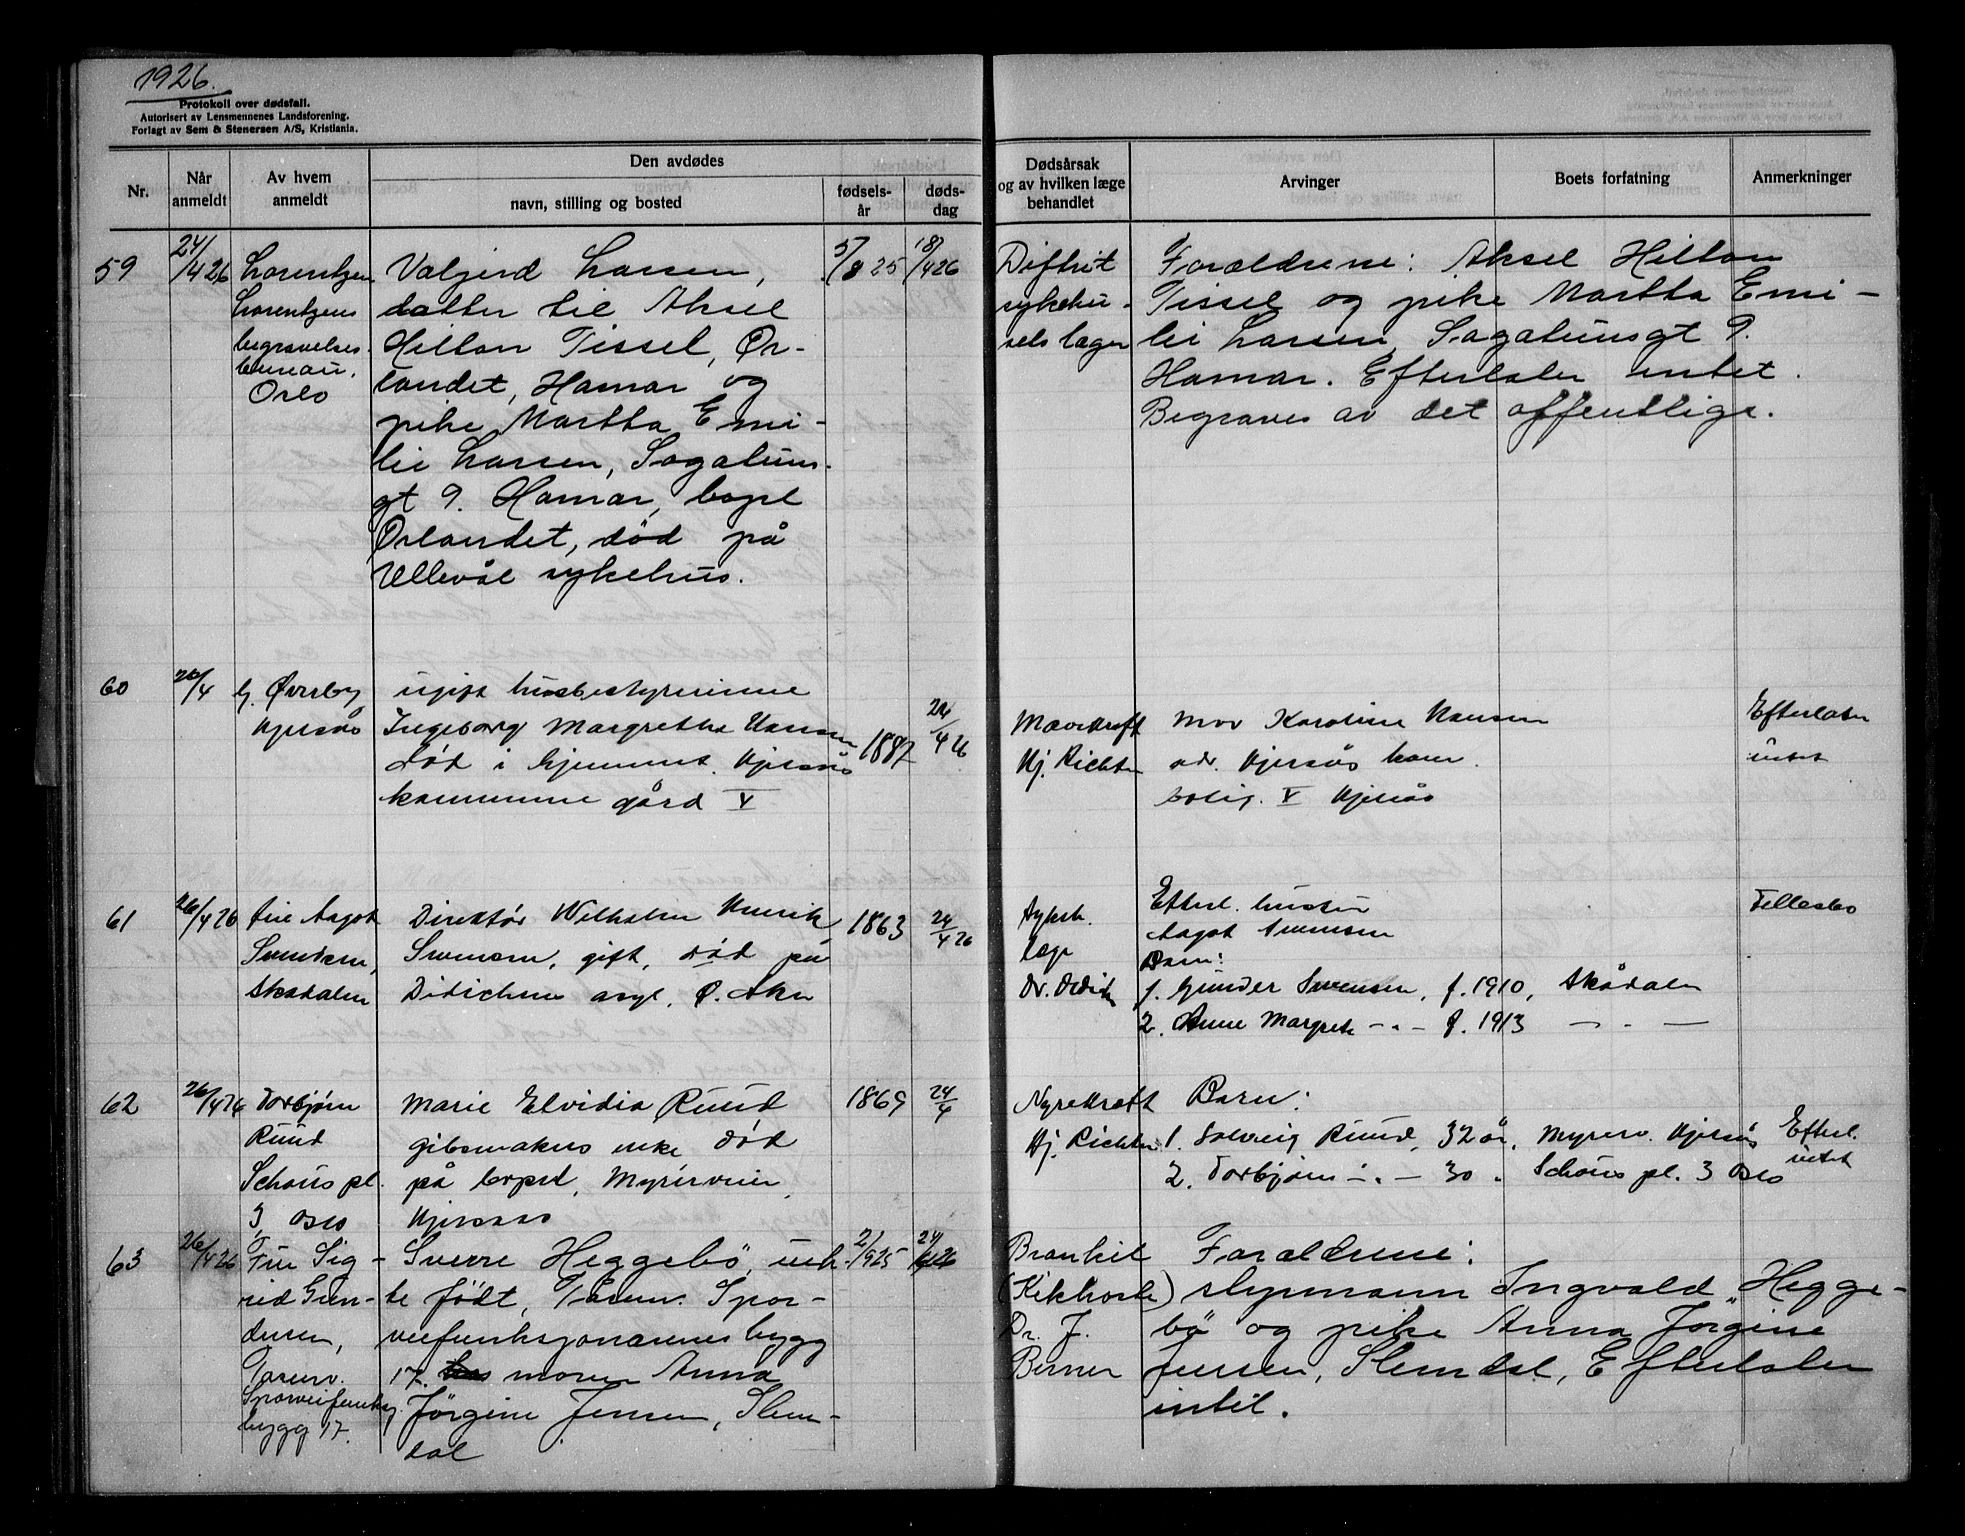 1926.
Protokoll over dødsfall.
Autorisert av Lensmennenes Landsforening.
Forlagt av Sem & Stenersen A/S, Kristiania.
Nr.
Når anmeldt
Av hvem anmeldt
Den avdødes
navn, stilling og bosted
fødsels-år
døds-dag
Dødsårsak og av hvilken læge behandlet
Arvinger
Boets forfatning
Anmerkninger
59
24/4 26
Lorentzen
Lorentzens
begravelses
bureau,
Oslo
Valjerd Larsen,
datter til Aksel
Hilton Tissel, Ør-
landet, Hamar og
pike Martha Emi-
lie Larsen, Sagatuns-
gt 9. Hamar, bopel
Ørlandet, død på
Ullevål sykehus.
5/8 25
18/4 26
Difterit
sykehu-
sets læger
Forældrene: Aksel Hilton
Tissel og pike Martha Emi-
lie Larsen, Sagatunsgt 9.
Hamar. Efterlater intet.
Begraves av det offentlige.
60
26/4
G. Øverby
Kjelsås
ugift husbestyrerinne
Ingeborg Margrethe Hansen
død i hjemmet. Kjelsås
kommune gård V
1887
24/4 26
Mavekræft
Hj. Richter
Mor Karoline Hansen
adr. Kjelsås kom.
bolig. V Kjelsås
Efterlater
intet
61
26/4 26
fru Aagot
Svendsen,
Skådalen
Direktør Wilhelm Henrik
Svensen, gift, død på
Dedichens asyl, Ø. Aker
1863
24/4 26
Sykeh.
læge
Dr. Dedichen
Efterl. hustru
Aagot Svensen
Barn:
1. Gunder Svensen, f. 1910, Skådalen
2. Anne Margrete - " - f. 1913 — " —
Fellesbo
62
26/4 26
Torbjørn
Ruud
Schous pl.
3, Oslo
Marie Elvidia Ruud
gibsmakers enke død
på bopel, Myrerveien,
Kjelsås
1869
24/4
Nyrekræft
Hj. Richter
Barn:
1. Solveig Ruud, 32 år, Myrerv. Kjelsås
2. Torbjørn - " - 30 " Schous pl. 3 Oslo
Efterl.
intet
63
26/4 26
Fru Sig-
rid Gun-
dersen,
Tåsenv.
Sporveisfunksj.
bygg 17.
Sverre Heggebø, uek-
te født, Tåsenv. Spor-
veifunksjonærenes bygg
17. hos moren Anna
Jørgine Jensen, Slem-
dal
2/9 25
24/4 26
Bronkit
(Kikhoste)
Dr. J.
Berner
Forældrene:
styrmann Ingvald Hegge-
bø og pike Anna Jørgine
Jensen, Slemdal, Efterlater
intet.